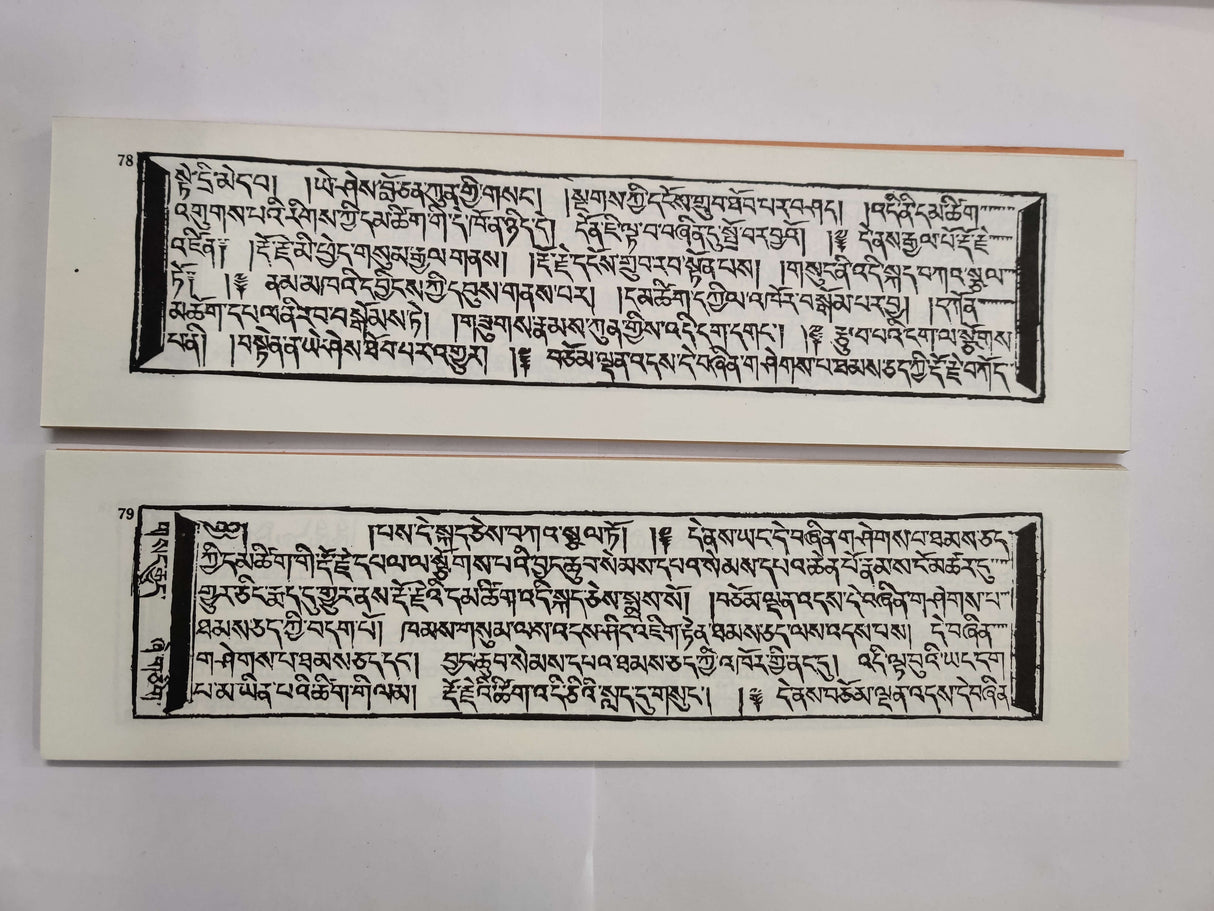 78
སྟེ་དྲི་མེད་བ། །ཡེ་ཤེས་བློ་ཅན་ཀུན་གྱི་གསང་། །སྔགས་ཀྱི་དངོས་གྲུབ་ཐོབ་པར་བཤད། །འདི་ནི་དམ་ཚིག་
འགུགས་པའི་རིགས་ཀྱི་དམ་ཚིག་གི་དེ་ཁོ་ན་ཉིད་དེ། དོན་ཇི་ལྟ་བ་བཞིན་དུ་སྤྲོ་བར་བྱའོ། །དེ་ནས་རྒྱལ་པོ་རྡོ་རྗེ་
འཛིན། །རྡོ་རྗེ་མི་ཕྱེད་གསུམ་རྒྱལ་གནས། །རྡོ་རྗེ་དངོས་གྲུབ་རབ་སྟོན་པས། །གསུང་ནི་འདི་སྐད་བཀའ་སྩལ་
ཏོ། །ནམ་མཁའི་དབྱིངས་ཀྱི་དབུས་གནས་པར། །དམ་ཚིག་དཀྱིལ་འཁོར་བསྒོམ་པར་བྱ། །དཀོན་
མཆོག་དཔལ་ནི་རབ་བསྒོམས་ཏེ། །གཟུགས་རྣམས་ཀུན་གྱིས་འདི་དག་དགང་། །རྩུབ་པའི་ངག་ལ་སྩོགས་
པ་ནི། །བསྟེན་ན་ཡེ་ཤེས་ཐོབ་པར་འགྱུར། །བཅོམ་ལྡན་འདས་དེ་བཞིན་གཤེགས་པ་ཐམས་ཅད་ཀྱི་རྡོ་རྗེ་བཀོད་
79
།པས་དེ་སྐད་ཅེས་བཀའ་སྩལ་ཏོ། །དེ་ནས་ཡང་དེ་བཞིན་གཤེགས་པ་ཐམས་ཅད་
ཀྱི་དམ་ཚིག་གི་རྡོ་རྗེ་དཔལ་ལ་སྩོགས་པའི་བྱང་ཆུབ་སེམས་དཔའ་སེམས་དཔའ་ཆེན་པོ་རྣམས་ངོ་མཚར་དུ་
གྱུར་ཅིང་རྨད་དུ་གྱུར་ནས་རྡོ་རྗེའི་དམ་ཚིག་འདི་སྐད་ཅེས་སྨྲས་སོ། །བཅོམ་ལྡན་འདས་དེ་བཞིན་གཤེགས་པ་
ཐམས་ཅད་ཀྱི་བདག་པོ། ཁམས་གསུམ་ལས་འདས་ཤིང་འཇིག་རྟེན་ཐམས་ཅད་ལས་འདས་པས། དེ་བཞིན་
གཤེགས་པ་ཐམས་ཅད་དང་། བྱང་ཆུབ་སེམས་དཔའ་ཐམས་ཅད་ཀྱི་འཁོར་གྱི་ནང་དུ། འདི་ལྟ་བུའི་ཡང་དག་
པ་མ་ཡིན་པའི་ཚིག་གི་ལམ། རྡོ་རྗེའི་ཚིག་འདི་ཅིའི་སླད་དུ་གསུང་། །དེ་ནས་བཅོམ་ལྡན་འདས་དེ་བཞིན་